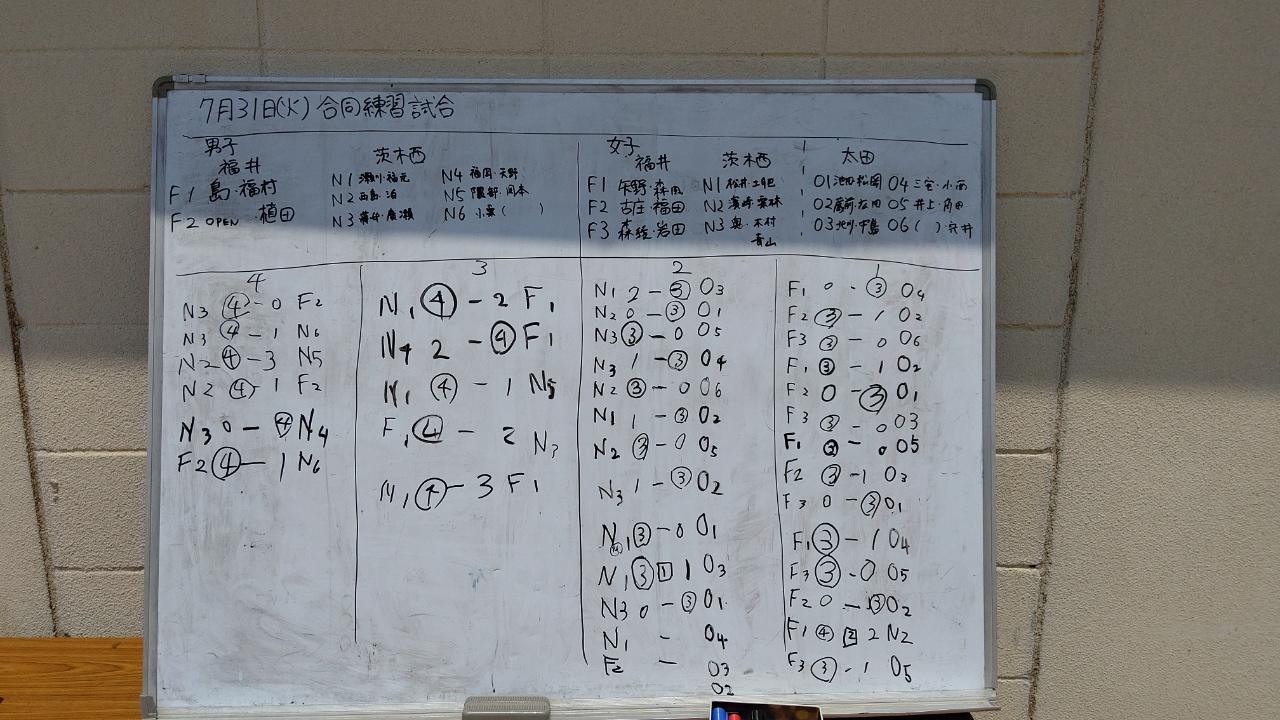 7月31日(火) 合同練習試合
男子
福井
F1 島・福村
F2 OPEN・植田
茨木西
N1 瀬川・福元
N2 西島・泊
N3
N4 福岡・天野
N5 岡本
N6 小泉( )
女子
福井
F1 矢野・森
F2 古庄・福田
F3 森 ・岩田
茨木西
N1 松井・
N2
N3 奥・木村
青山
太田
O1 池田・松岡
O2
O3 北川・中島
O4 三宅・小西
O5 井上・角田
O6( )
4
N3 ④-0 F2
N3 ④-1 N6
N2 ④-3 N5
N2 ④-1 F2
N3 0-④ N4
F2 ④-1 N6
3
N1 ④-2 F1
N4 2-④ F1
N1 ④-1 N5
F1 ④-2 N2
N1 ④-3 F1
2
N1 2-③ O3
N2 0-③ O1
N3 ③-0 O5
N3 1-③ O4
N2 ③-0 O6
N1 1-③ O2
N2 ③-0 O5
N3 1-③ O2
N1 ③-0 O1
N1 ③ 1 1 O3
N3 0-③ O1
N1 - O4
F2 - O3
O2
1
F1 0-③ O4
F2 ③-1 O2
F3 ③-0 O6
F1 ③-1 O2
F2 0-③ O1
F3 ③-0 O3
F1 ③-0 O5
F2 ③-1 O3
F3 0-③ O1
F1 ③-1 O4
F3 ③-0 O5
F2 0-③ O2
F1 ④ 2 2 N2
F3 ③-1 O5